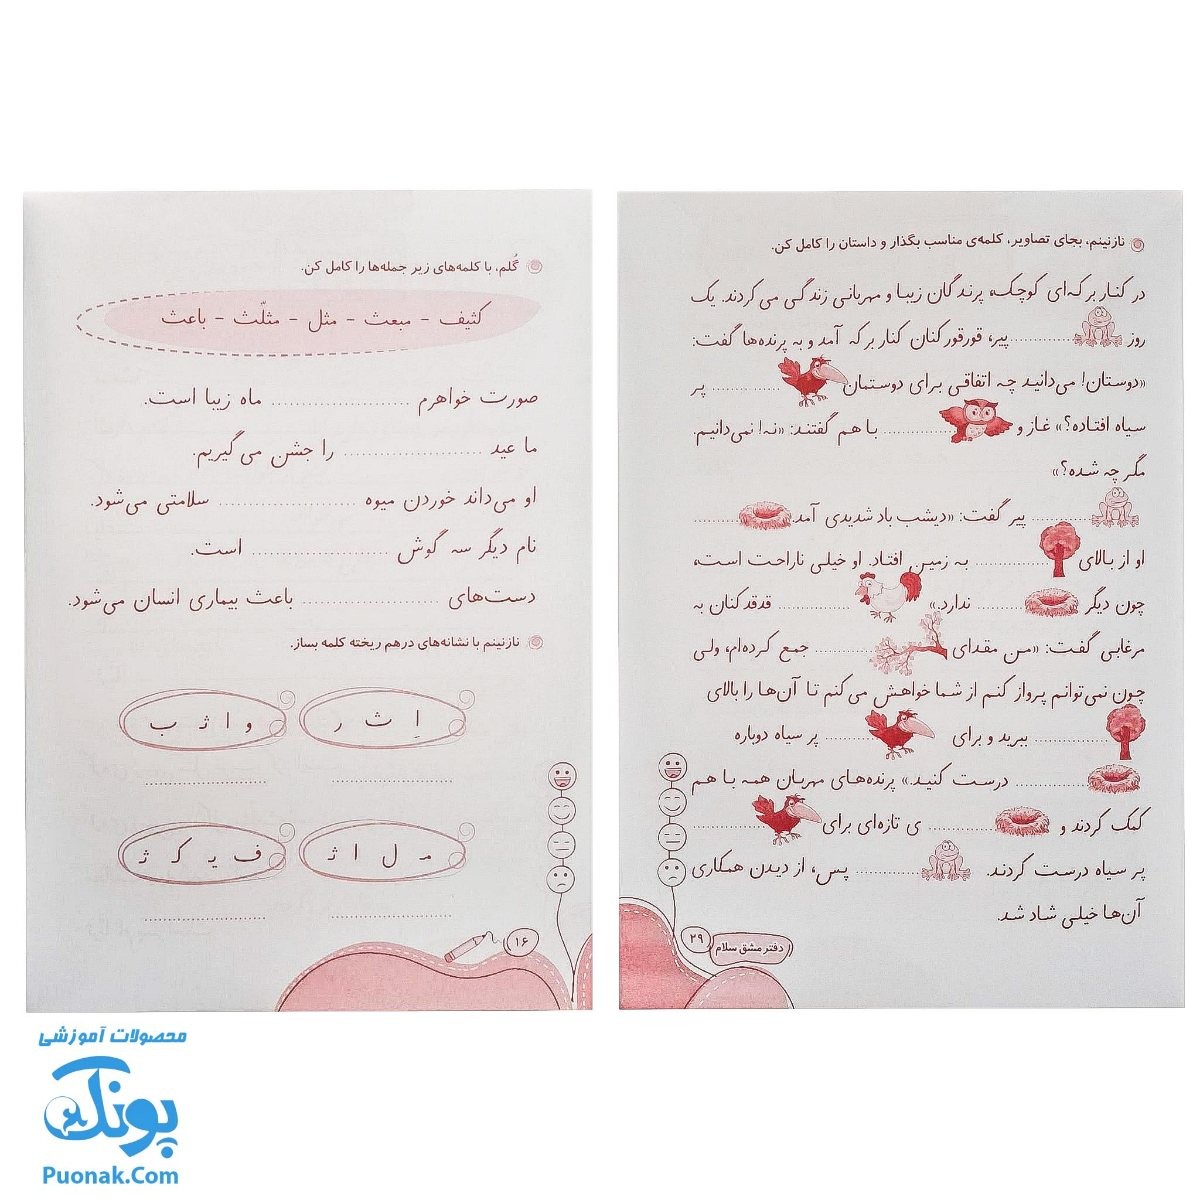 نازنینم، بجای تصاویر، کلمه‌ی مناسب بگذار و داستان را کامل کن.
در کنار برکه‌ای کوچک، پرندگان زیبا و مهربانی زندگی می‌کردند. یک
روز ............ پیر، قورقورکنان کنار برکه آمد و به پرنده‌ها گفت:
«دوستان! می‌دانید چه اتفاقی برای دوستمان ............ پر
سیاه افتاده؟» غاز و ............ با هم گفتند: «نه! نمی‌دانیم.
مگر چه شده؟»
............ پیر گفت: «دیشب باد شدیدی آمد ............
او از بالای ............ به زمین افتاد. او خیلی ناراحت است،
چون دیگر ............ ندارد.» ............ قدقدکنان به
مرغابی گفت: «من مقدای ............ جمع کرده‌ام، ولی
چون نمی‌توانم پرواز کنم از شما خواهش می‌کنم تا آن‌ها را بالای
............ ببرید و برای ............ پر سیاه دوباره
............ درست کنید.» پرنده‌های مهربان همه با هم
کمک کردند و ............ ی تازه‌ای برای ............
پر سیاه درست کردند. ............ پس، از دیدن همکاری
آن‌ها خیلی شاد شد.
۲۹ دفتر مشق سلام
گُلم، با کلمه‌های زیر جمله‌ها را کامل کن.
کثیف - مبعث - مثل - مثلّث - باعث
صورت خواهرم ............ ماه زیبا است.
ما عید ............ را جشن می‌گیریم.
او می‌داند خوردن میوه ............ سلامتی می‌شود.
نام دیگر سه گوش ............ است.
دست‌های ............ باعث بیماری انسان می‌شود.
نازنینم با نشانه‌های درهم ریخته کلمه بساز.
اِ ثـ ر
و ا ثـ ب
مـ ل ا ثـ
ف یـ کـ ثـ
۱۶
محصولات آموزشی
پونک
Puonak.Com